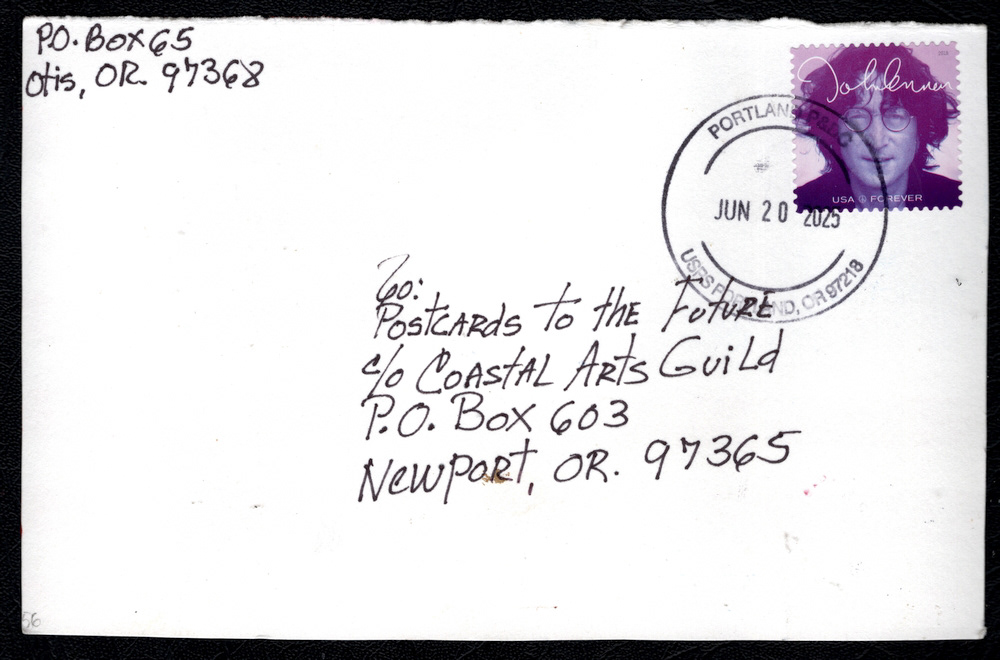 P.O. Box 65
Otis, OR. 97368
John Lennon
USA FOREVER
PORTLAND P&DC
JUN 20 2025
USPS PORTLAND, OR 97218
To:
Postcards to the Future
c/o Coastal Arts Guild
P.O. Box 603
Newport, OR. 97365
56